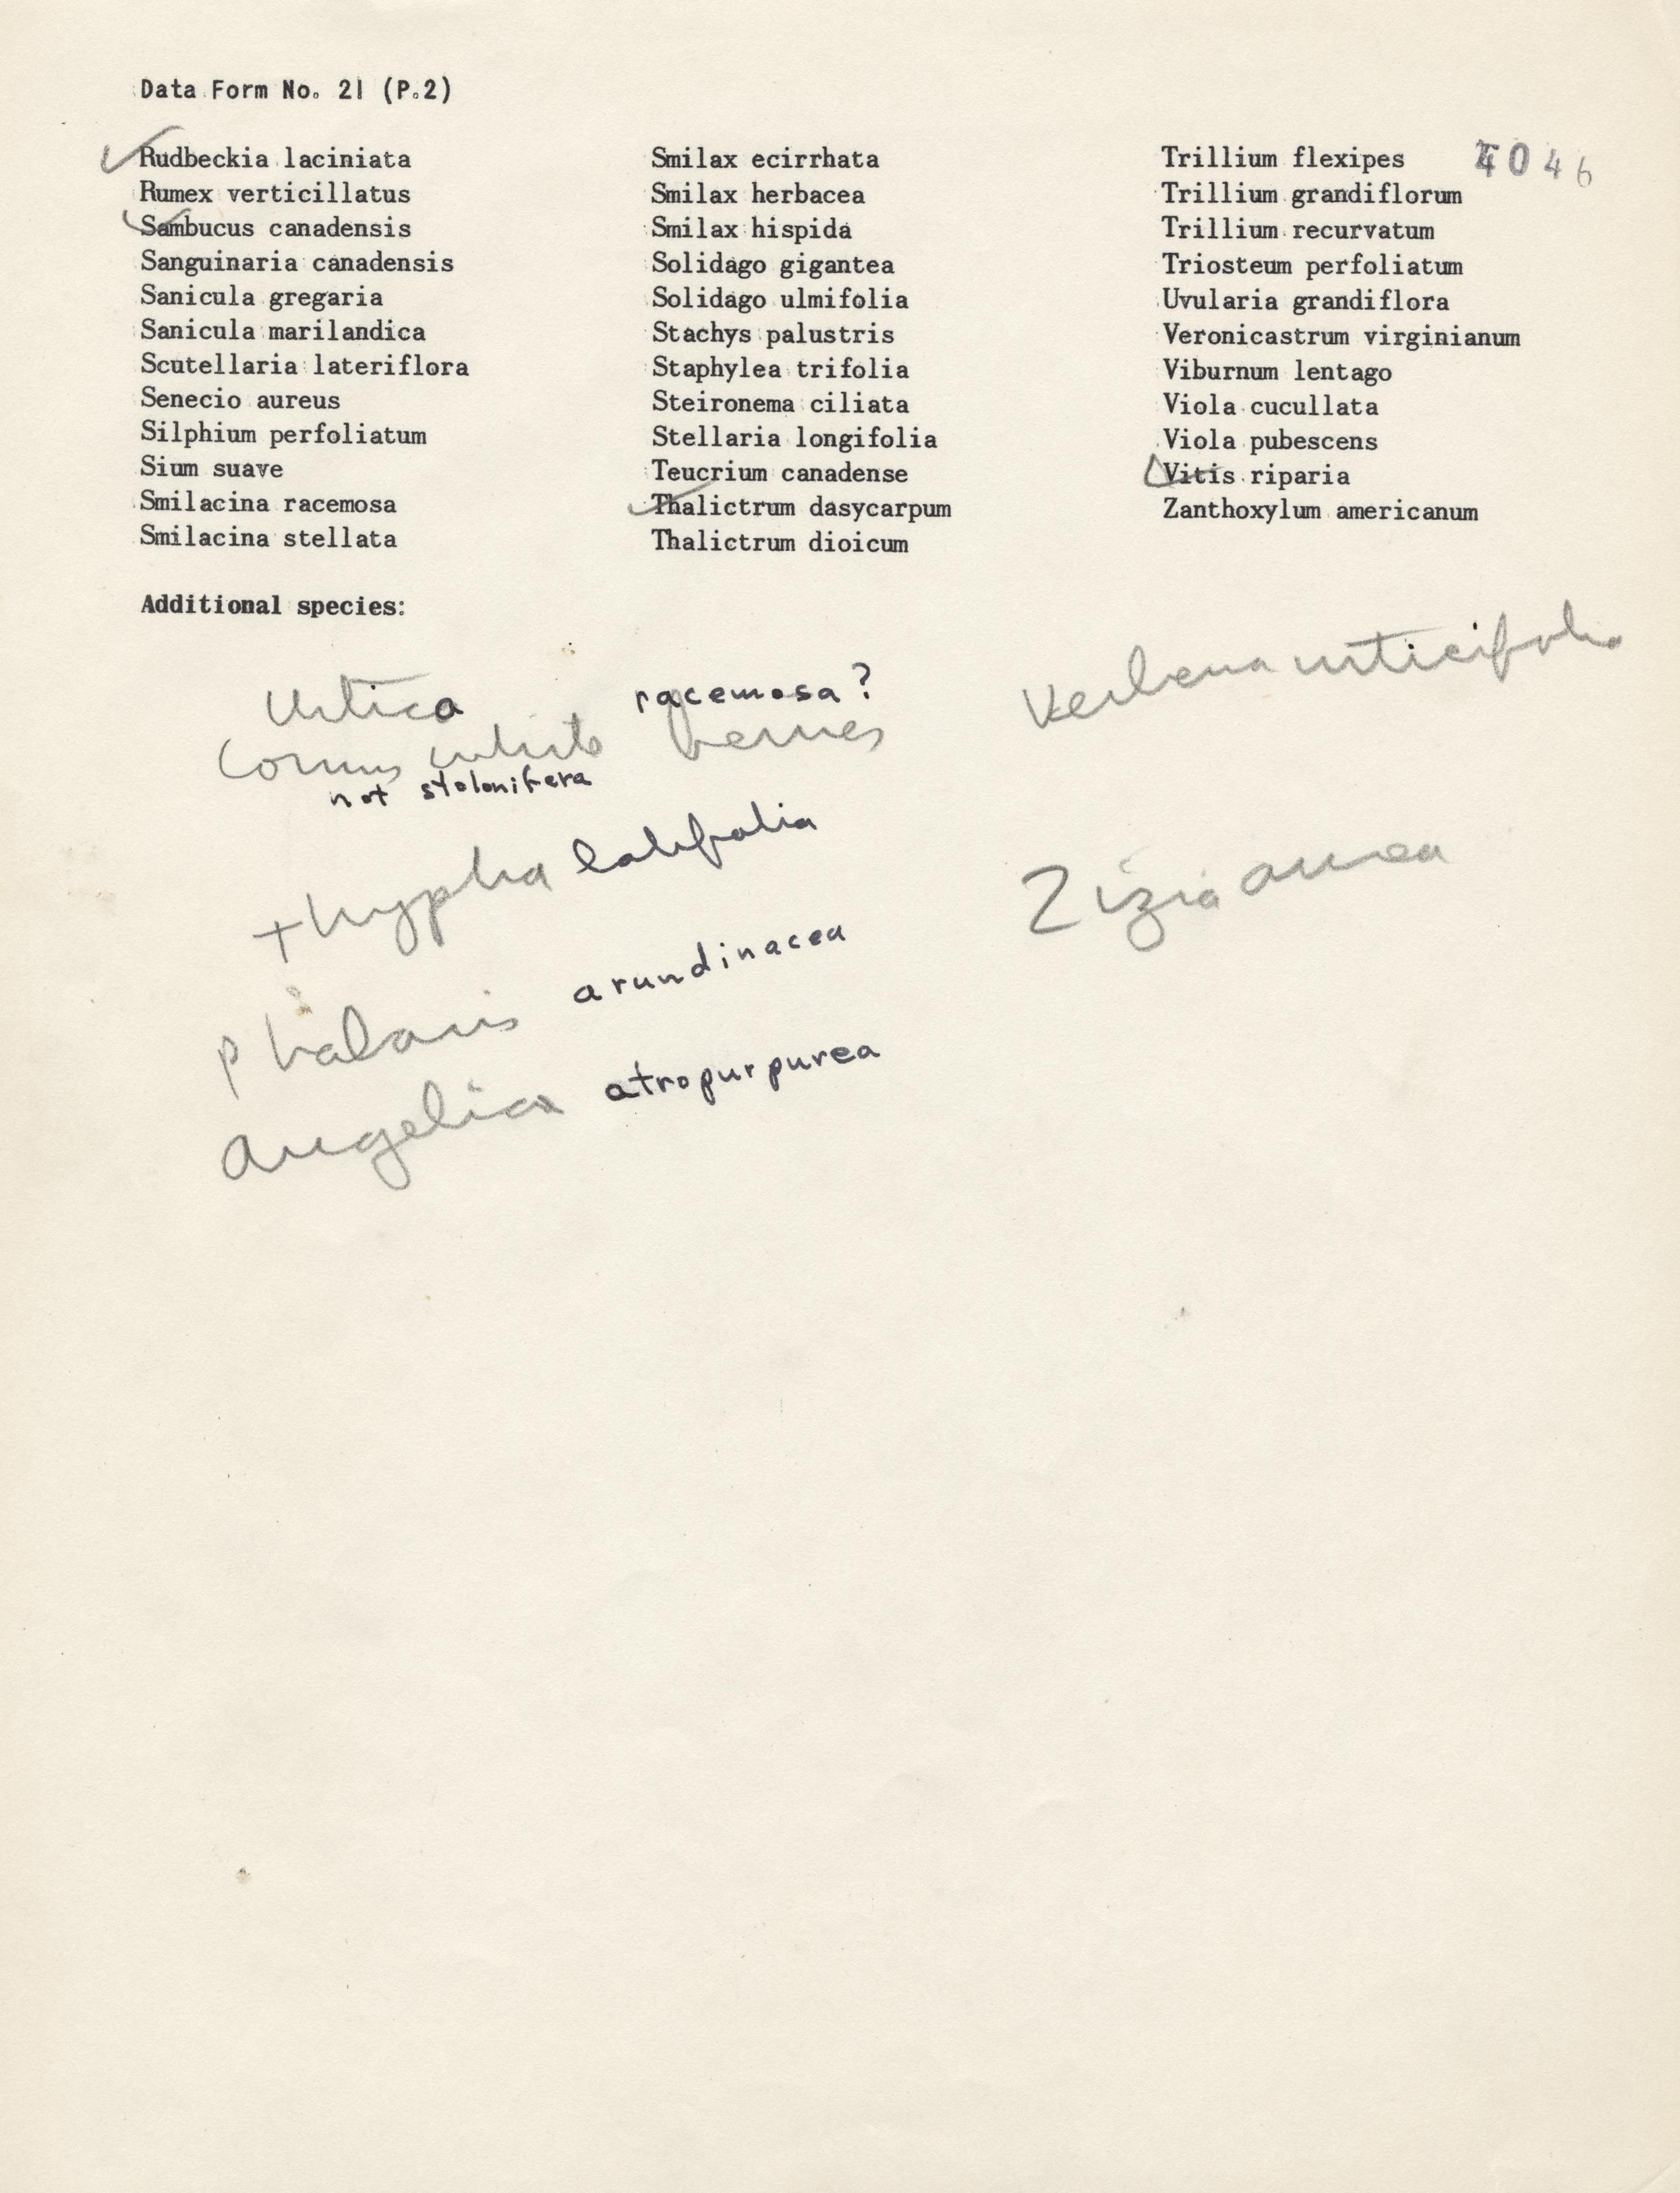 Data Form No. 21 (P.2)
4046
Rudbeckia laciniata
Rumex verticillatus
Sambucus canadensis
Sanguinaria canadensis
Sanicula gregaria
Sanicula marilandica
Scutellaria lateriflora
Senecio aureus
Silphium perfoliatum
Sium suave
Smilacina racemosa
Smilacina stellata
Smilax ecirrhata
Smilax herbacea
Smilax hispida
Solidago gigantea
Solidago ulmifolia
Stachys palustris
Staphylea trifolia
Steironema ciliata
Stellaria longifolia
Teucrium canadense
Thalictrum dasycarpum
Thalictrum dioicum
Trillium flexipes
Trillium grandiflorum
Trillium recurvatum
Triosteum perfoliatum
Uvularia grandiflora
Veronicastrum virginianum
Viburnum lentago
Viola cucullata
Viola pubescens
Vitis riparia
Zanthoxylum americanum
Additional species:
Urtica
racemosa?
Cornus white berries
not stolonifera
Thypha latifolia
Phalaris arundinacea
Angelica atropurpurea
Verbena urticifolia
Zizia aurea